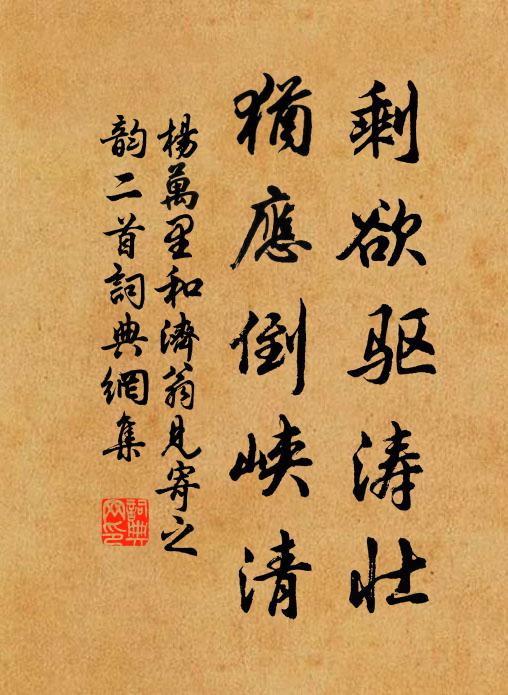 剩欲驱涛壮
猶應倒峡清
楊萬里和濟翁見寄之
韵二首詞典網集
詞典网印